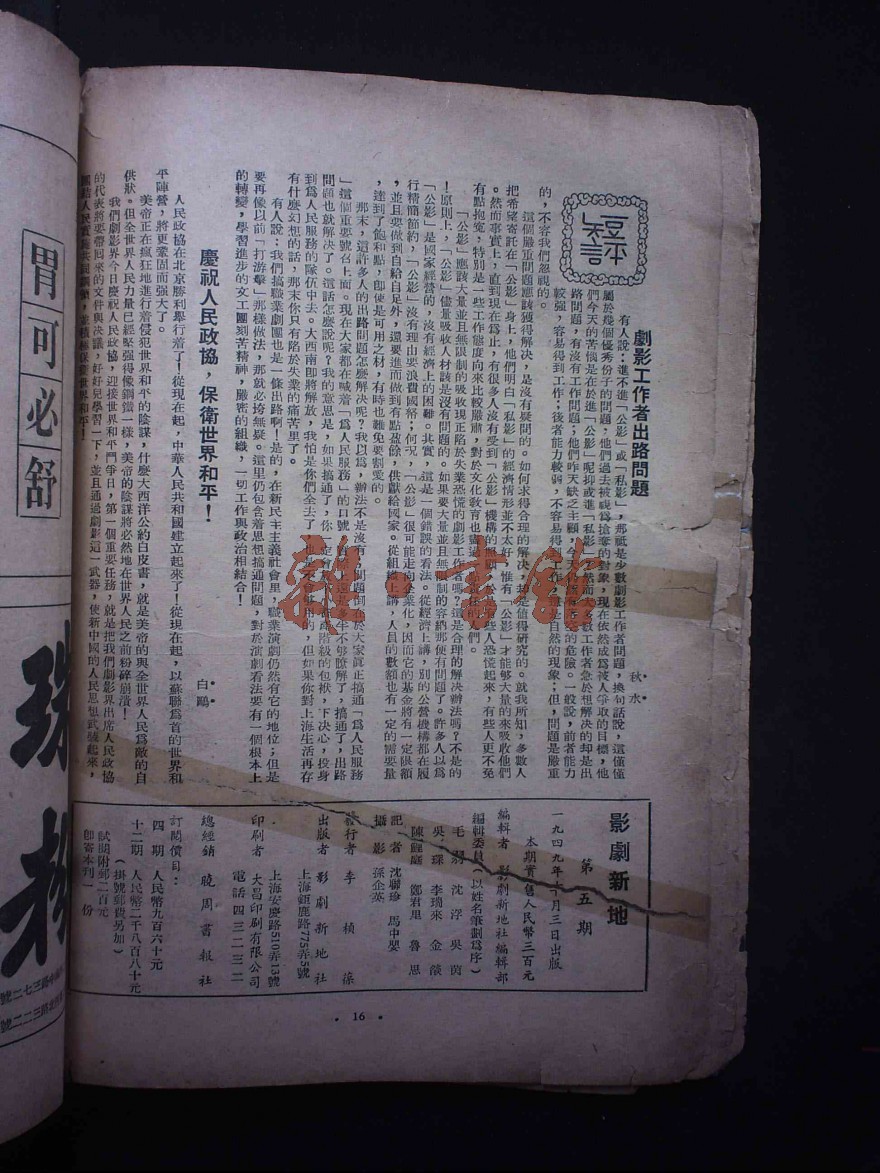 劇影工作者出路問題
秋水
有人說：進不進「公影」或「私影」，那祇是少數劇影工作者問題，換句話說，這僅僅
屬於幾個優秀份子的問題；他們過去被視為搶奪的對象，現在依然成為被人爭取的目標，他
們今天的苦惱是在於進「公影」呢抑或進「私影」？然而大多數工作者急於想解決的却是出
路問題，有沒有工作問題；他們昨天缺乏主顧，今天仍然有失業的危險。一般說，前者能力
較强，容易得到工作；後者能力較弱，不容易得到工作，這是自然的現象；但，問題是嚴重
的，不容我們忽視的。
這個嚴重問題應該獲得解決，是沒有疑問的。如何求得合理的解決，却是值得研究的。就我所知，多數人
把希望寄託在「公影」身上，他們明白「私影」的經濟情形並不太好，惟有「公影」才能够大量的來吸收他們
。然而事實上，直到現在為止，有很多人沒有受到「公影」機構的照顧，於是某些人恐慌起來，有些人更不至
有點抱寃，特別是一些工作態度向來比較嚴肅，對於文化教育也盡過一定責任的人們。
「公影」應該大量並且無限制的吸收現正陷於失業恐慌的劇影工作者嗎？這是合理的解決辦法嗎？不是的
！原則上，「公影」儘量吸收人材該是沒有問題的。如果要大量並且無限制的容納那便有問題了。許多人以為
「公影」是國家經營的，沒有經濟上的困難。其實，這是一個錯誤的看法。從經濟上講，別的公營機構都在厲
行精簡節約，「公影」沒有理由要浪費國帑；何況，「公影」很可能走向企業化，因而它的基金將有一定限額
，並且要做到自給自足外，還要進而做到有點盈餘，供獻給國家。從組織上講，人員的數額也有一定的需要量
，達到了飽和點，即使是可用之材，有時也難免要割愛的。
那末，這許多人的出路問題怎麼解決呢？我以為，辦法不是沒有；問題倒在於大家眞正搞通「為人民服務
」這個重要號召上面。現在大家都在喊着「為人民服務」的口號
問題也就解決了。這話怎麼說呢？我的意思是，如果搞通了，你
到為人民服務的隊伍中去。大西南即將解放，我怕是你們全去了
有什麼幻想的話，那末你只有陷於失業的痛苦里了。
有人說：我們搞職業劇團也是一條出路啊！是的，在新民主主義社會里，職業演劇仍然有它的地位；但是
要再像以前「打游擊」那樣做法，那就必垮無疑。這里仍包含着思想搞通問題，對於演劇看法要有一個根本上
的轉變，學習進步的文工團刻苦精神，嚴密的組織，一切工作與政治相結合！
慶祝人民政協，保衛世界和平！
白鷗
人民政協在北京勝利舉行着了！從現在起，中華人民共和國建立起來了！從現在起，以蘇聯為首的世界和
平陣營，將更鞏固而强大了。
美帝正在瘋狂地進行着侵犯世界和平的陰謀，什麼大西洋公約白皮書，就是美帝的與全世界人民為敵的自
供狀。但全世界人民力量已經堅强得像鋼鐵一樣，美帝的陰謀將必然地在世界人民之前粉碎崩潰！
我們劇影界今日慶祝人民政協，迎接世界和平鬥爭日，第一個重要任務，就是把我們劇影界出席人民政協
的代表將要帶回來的文件與決議，好好兒學習一下，並且通過劇影這一武器，使新中國的人民思想武裝起來，
影劇新地
第五期
一九四九年十月三日出版
本期實售人民幣三百元
編輯者 影劇新地社編輯部
編輯委員（以姓名筆劃為序）
毛羽 沈浮 吳茵
吳琛 李瑞來 金燄
陳鯉庭 鄭君里 魯思
記者 沈聯珍 馬中嬰
攝影 孫企英
發行者 李楨葆
出版者 影劇新地社
上海鉅鹿路775弄5號
上海安慶路510弄13號
印刷者 大昌印刷有限公司
電話四三二三二
總經銷 曉周書報社
訂閱價目：
四期 人民幣九百六十元
十二期 人民幣二千八百八十元
（掛號郵費另加）
試閱附郵二百元
即寄本刊一份
16
胃可必舒